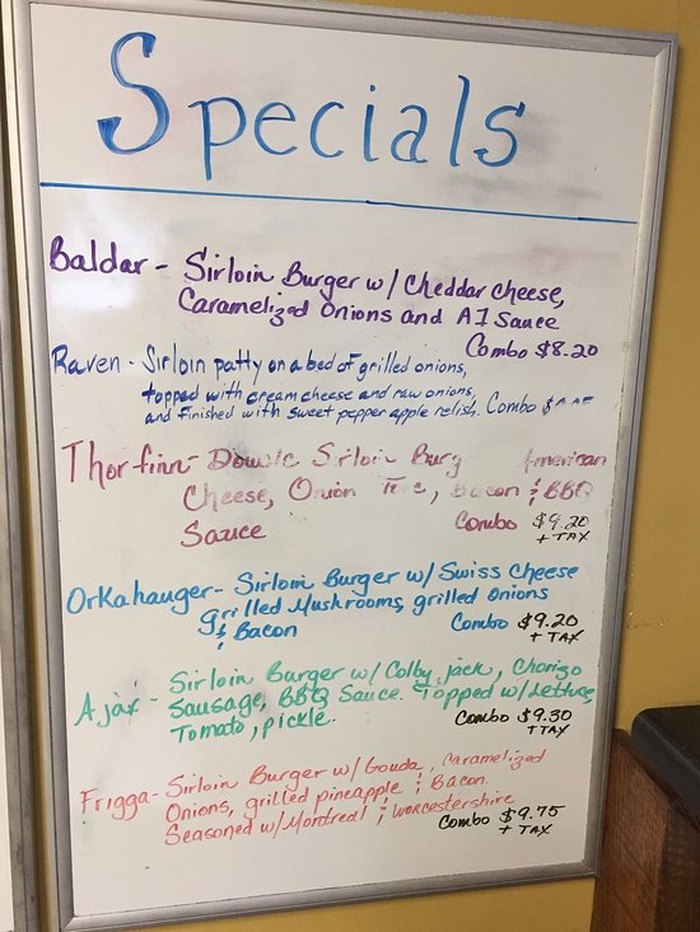 Specials
Baldar - Sirloin Burger w/ Cheddar Cheese,
Caramelized Onions and A1 Sauce
Combo $8.20
Raven - Sirloin patty on a bed of grilled onions,
topped with cream cheese and raw onions,
and finished with sweet pepper apple relish. Combo $
Thorfinn - Double Sirloin Burg American
Cheese, Onion , Bacon & BBQ
Sauce Combo $9.20
+ TAX
Orkahauger - Sirloin Burger w/ Swiss Cheese
grilled Mushrooms, grilled Onions
& Bacon Combo $9.20
+ TAX
Ajax - Sirloin Burger w/ Colby jack, Chorizo
Sausage, BBQ Sauce. Topped w/ Lettuce,
Tomato, pickle. Combo $9.30
+ TAX
Frigga - Sirloin Burger w/ Gouda, Caramelized
Onions, grilled pineapple & Bacon.
Seasoned w/ Montreal & Worcestershire
Combo $9.75
+ TAX